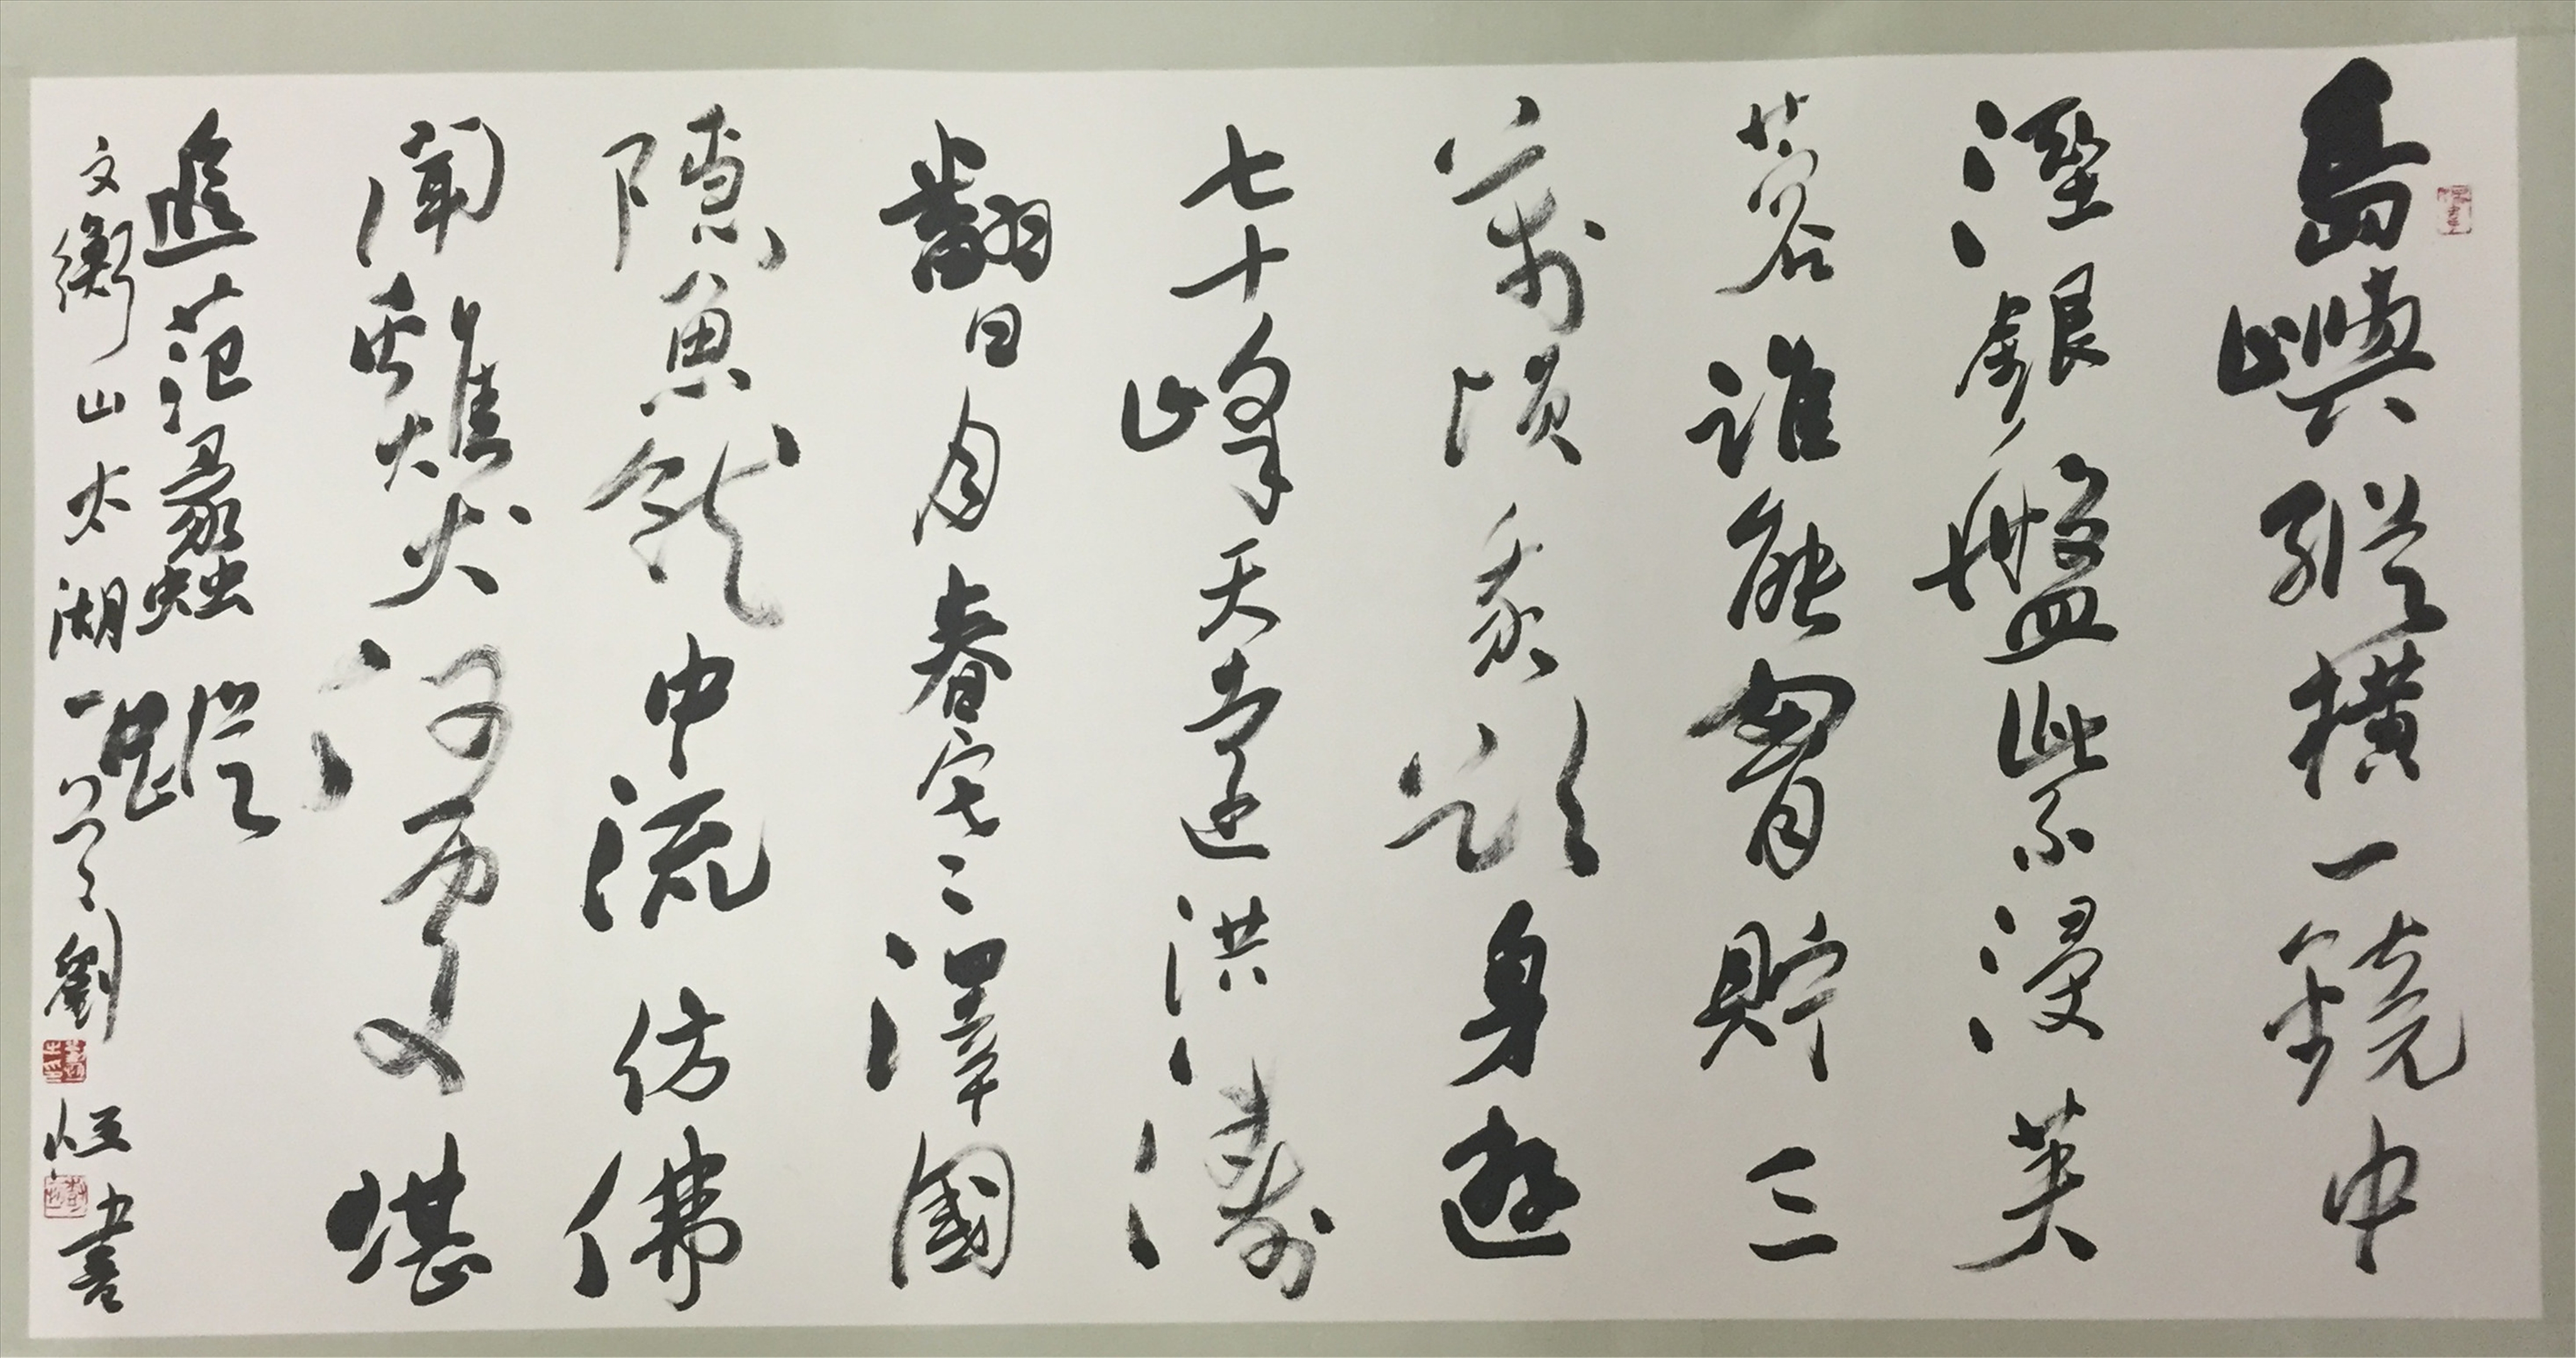 島嶼縱橫一鏡中
溼銀盤紫浸芙
蓉誰能胷貯三
萬頃我欲身遊
七十峰天遠洪濤
翻日月春寒澤國
隱魚龍中流仿佛
聞雞犬何處堪
追范蠡蹤
文衡山太湖一首劉恒書